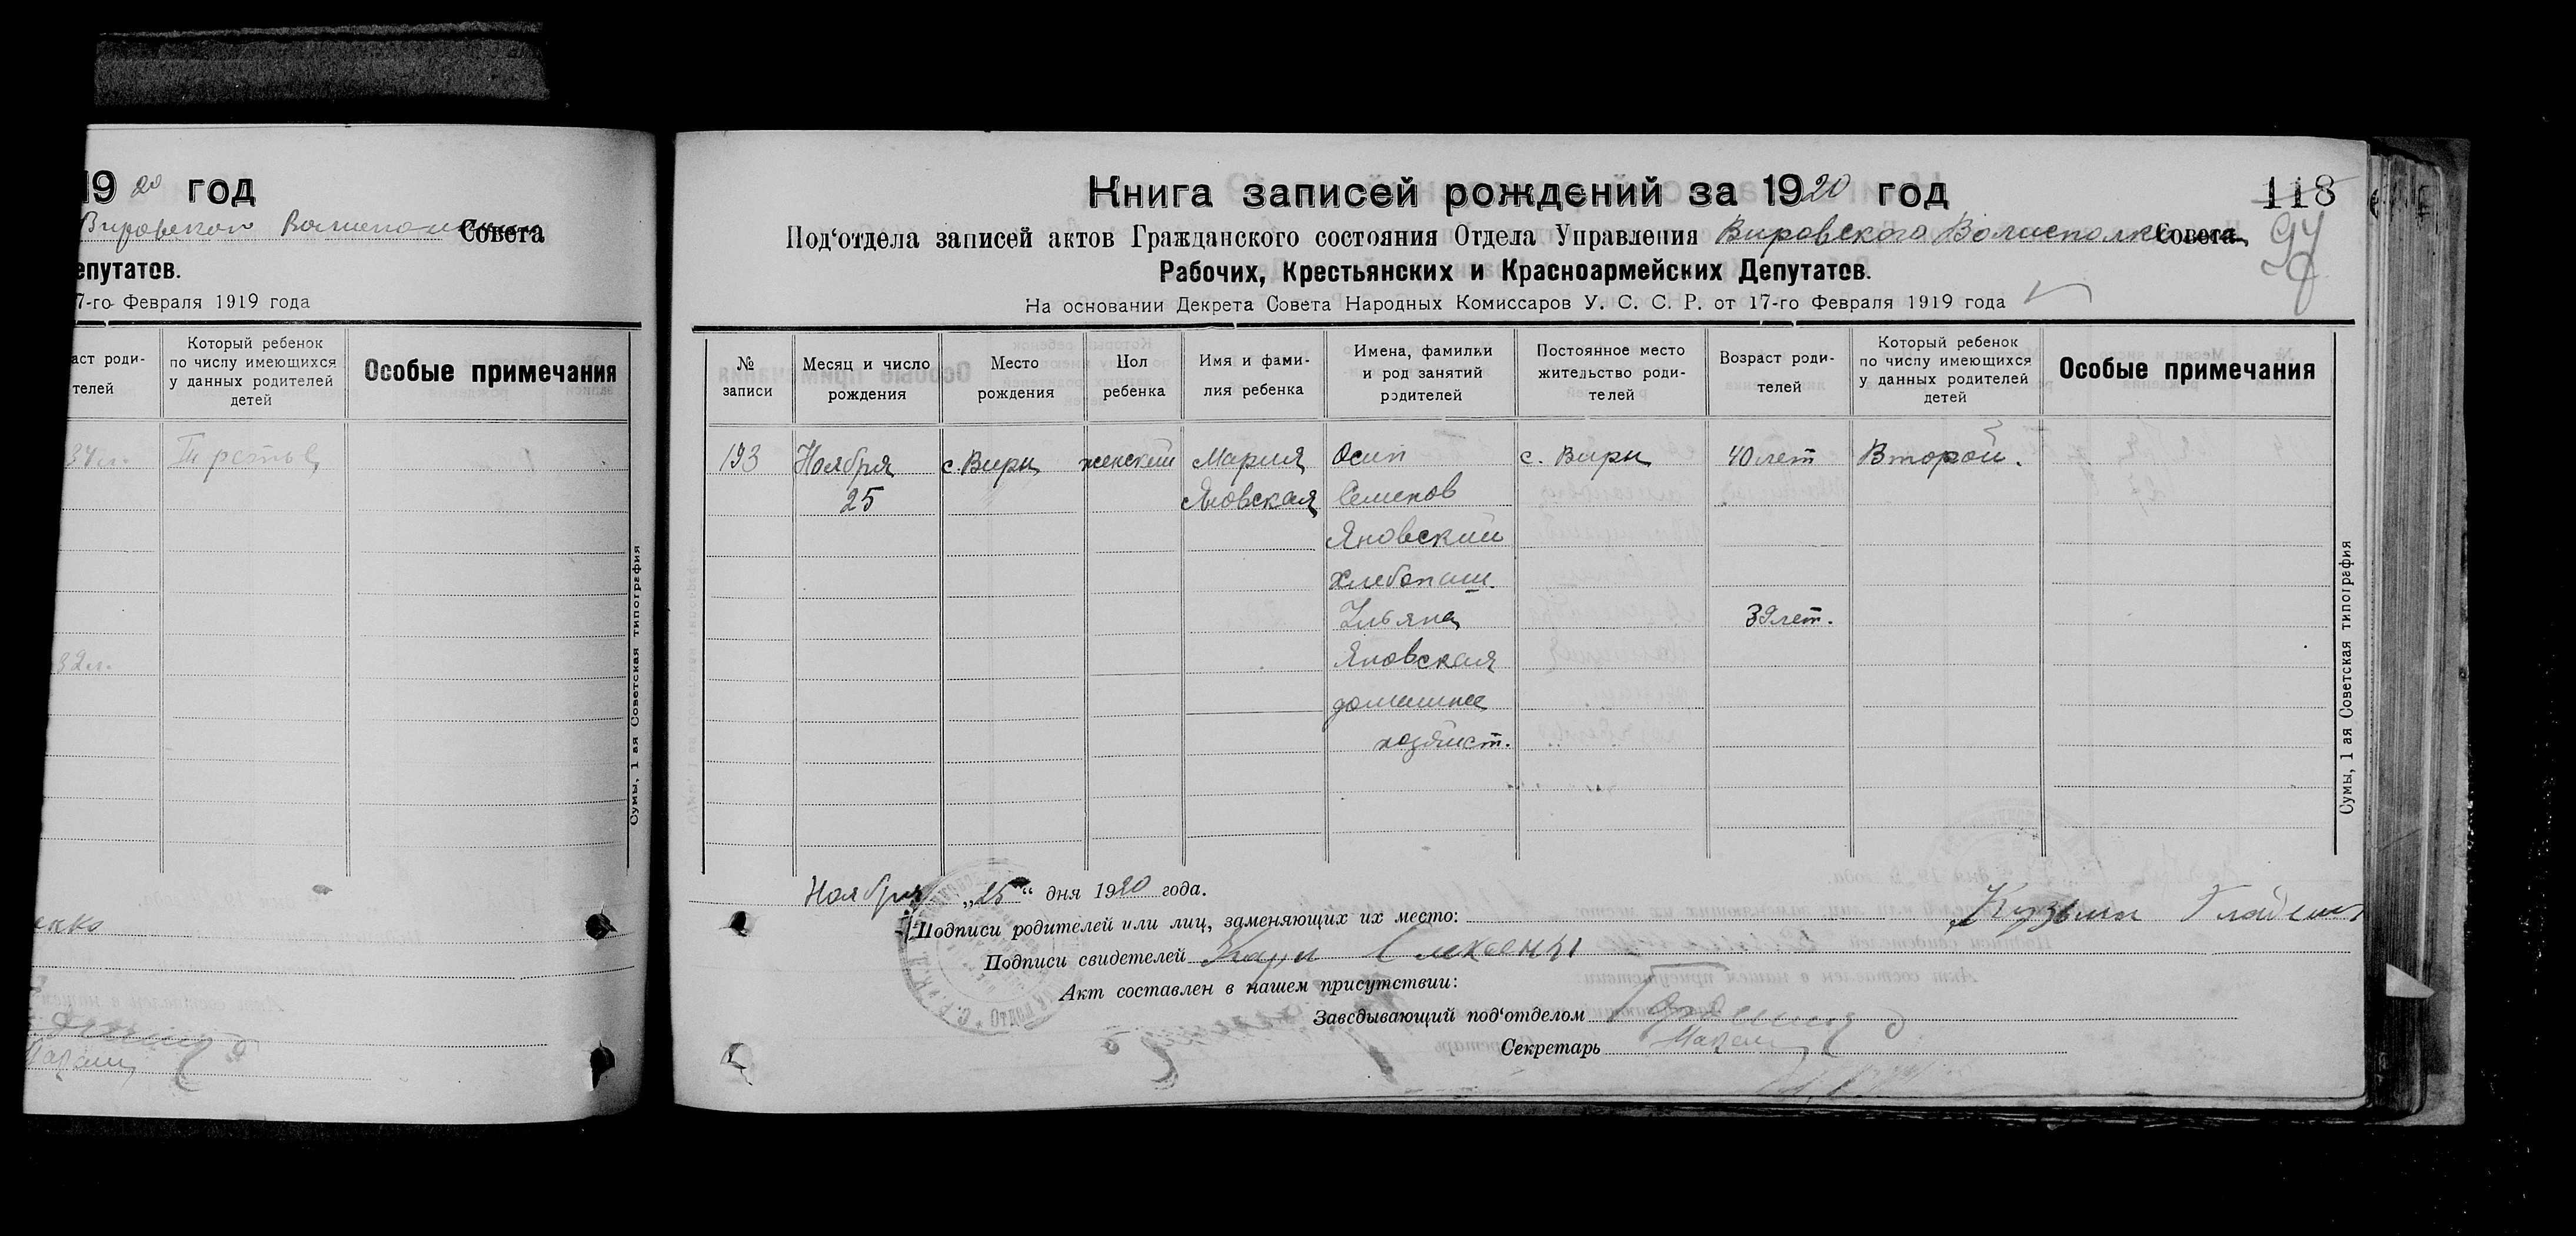 1920 год
Вировского Волисполкома Совета
епутатов.
7-го Февраля 1919 года
аст роди-
телей
Который ребенок
по числу имеющихся
у данных родителей
детей
Особые примечания
34 л. Третье
32 л.
енко
Сумы, 1 ая Советская типография
Книга записей рождений за 1920 год
118
94
Под'отдела записей актов Гражданского состояния Отдела Управления Вировского Волисполкома Совета
Рабочих, Крестьянских и Красноармейских Депутатов.
На основании Декрета Совета Народных Комиссаров У. С. С. Р. от 17-го Февраля 1919 года
№
записи
Месяц и число
рождения
Место
рождения
Пол
ребенка
Имя и фами-
лия ребенка
Имена, фамилии
и род занятий
родителей
Постоянное место
жительство роди-
телей
Возраст роди-
телей
Который ребенок
по числу имеющихся
у данных родителей
детей
Особые примечания
193 Ноября с. Виры женский Мария Осип с. Виры 40 лет Второй.
25 Яновская Семенов
Яновский
хлебопаш.
Ульяна 39 лет.
Яновская
домашнее
хозяйст.
Ноября „25“ дня 1920 года.
Подписи родителей или лиц, заменяющих их место:
Кузьма
Подписи свидетелей
Акт составлен в нашем присутствии:
Заведывающий под'отделом
Секретарь
Сумы, 1 ая Советская типография